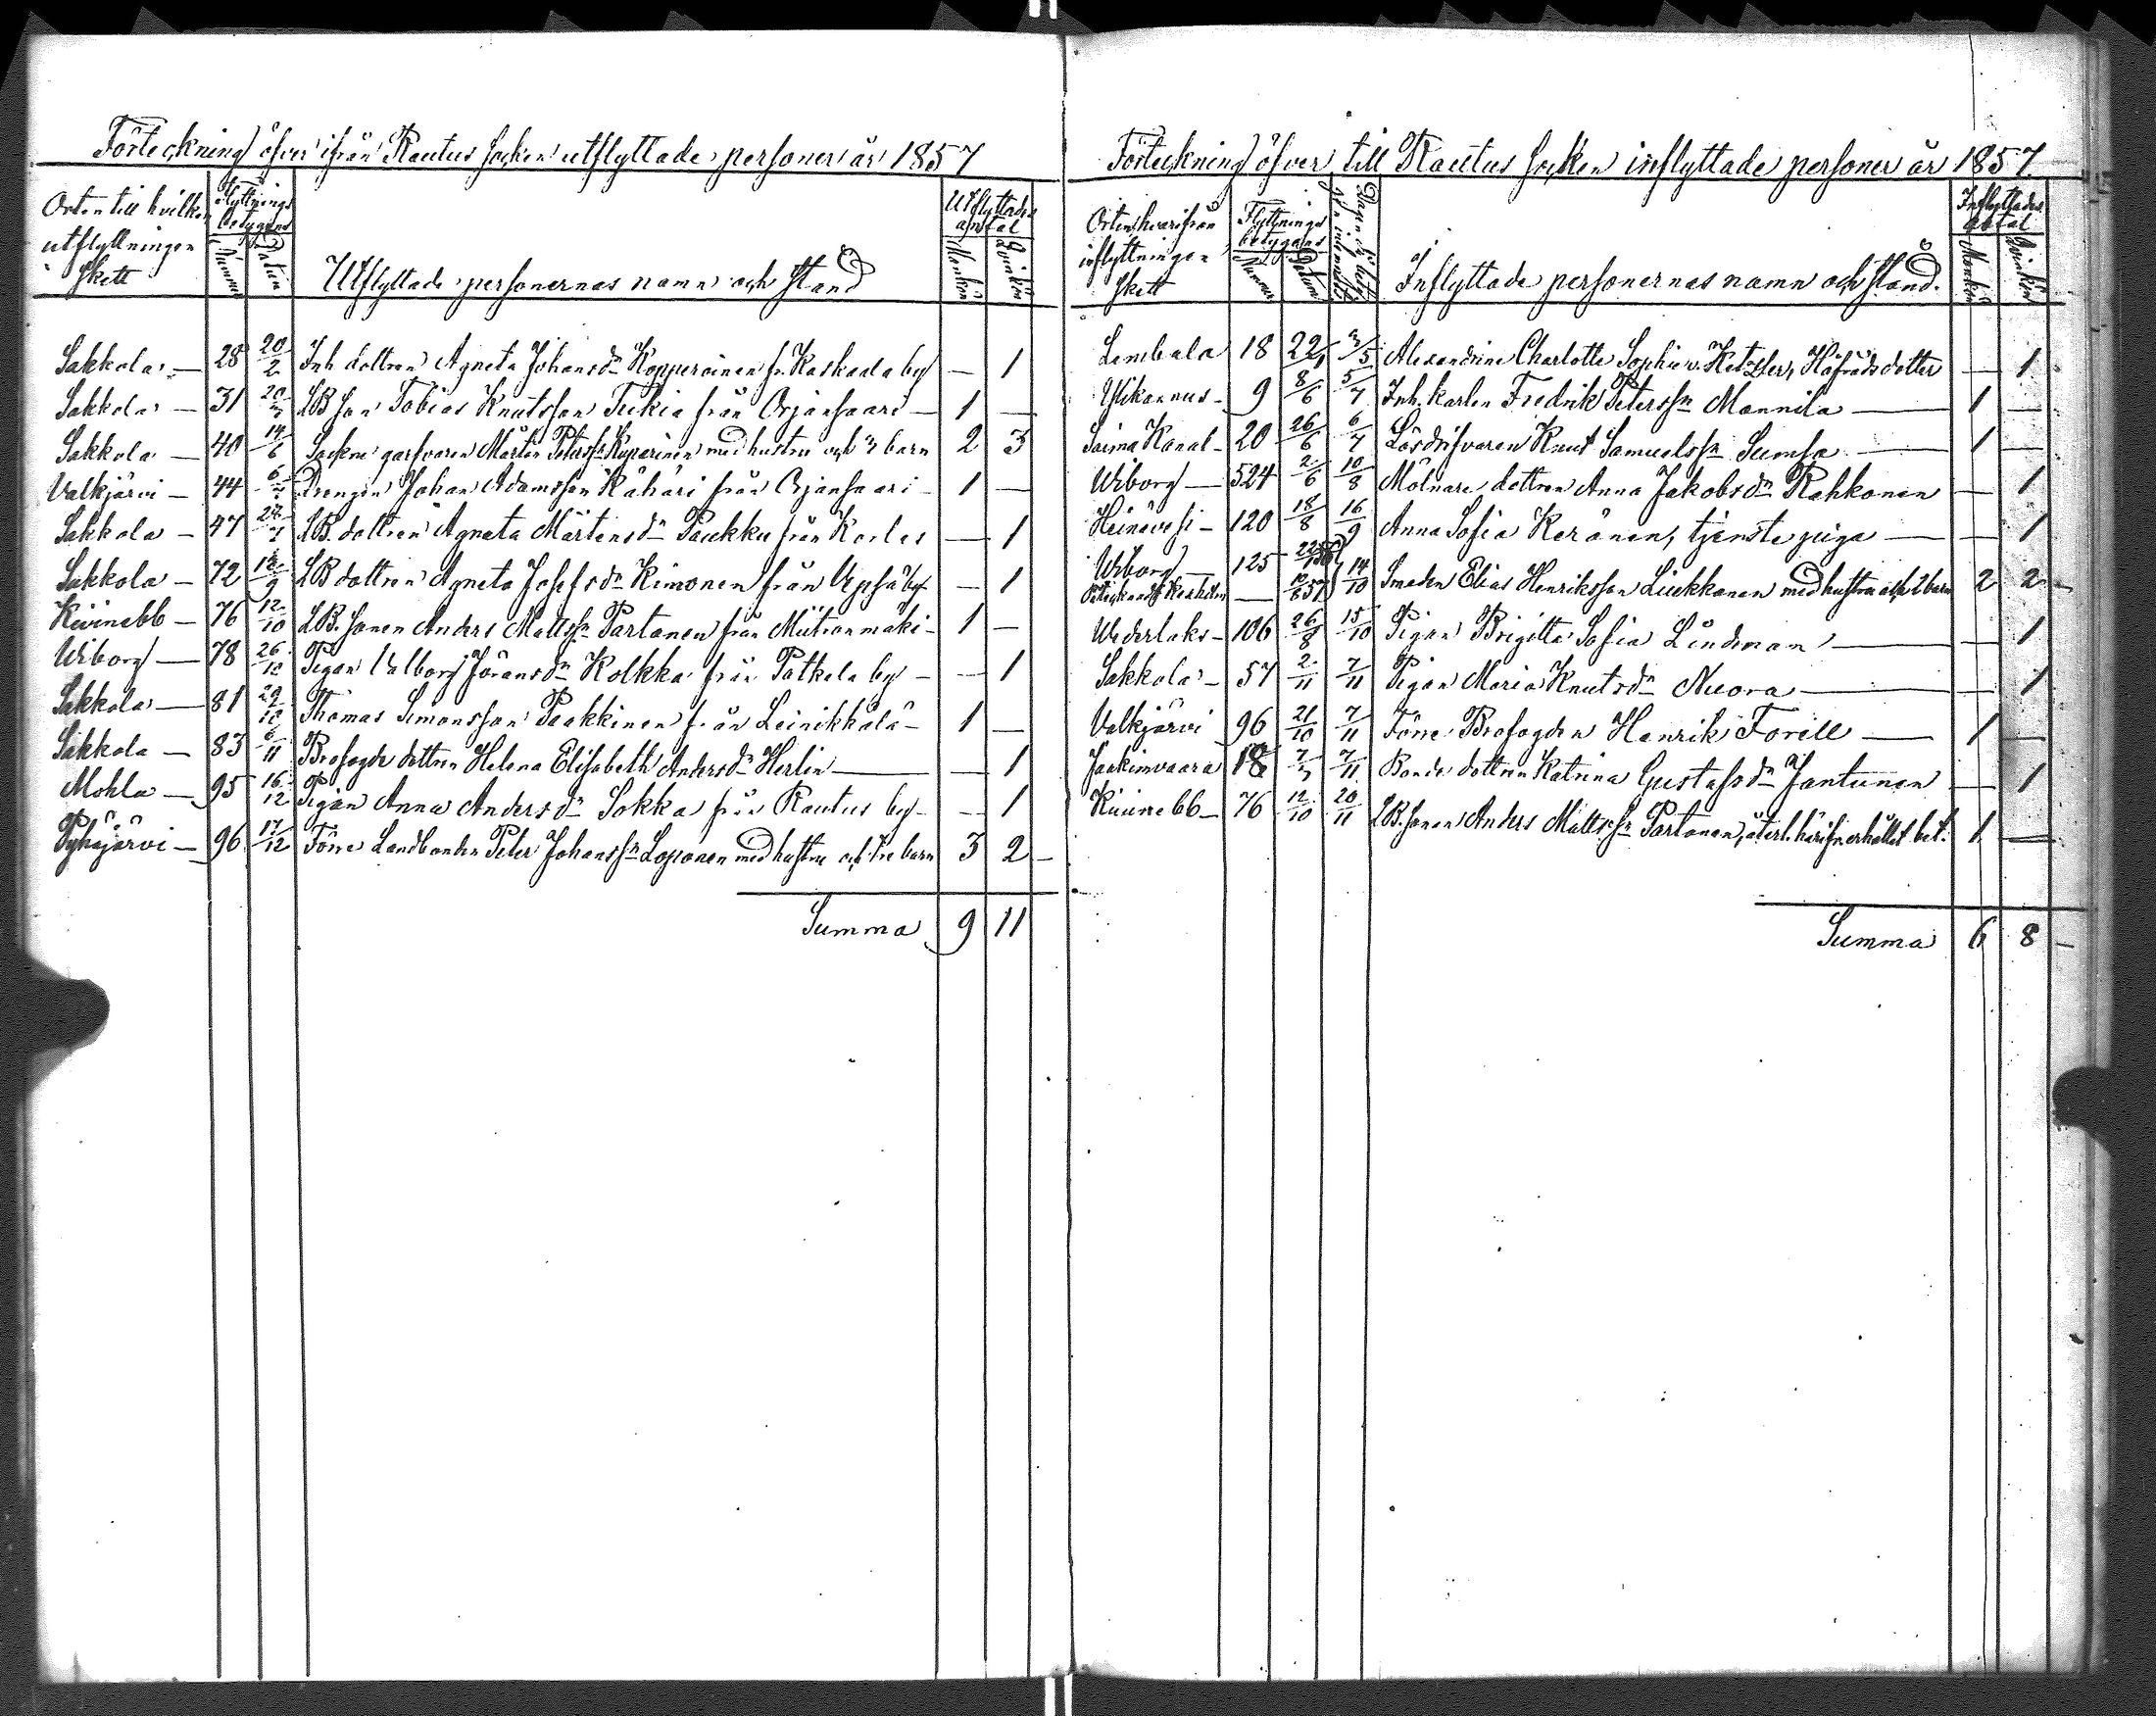 Förteckning öfver ifrån Rautus socken utflyttade personer år 1857
Orten till hvilken utflyttningen skett | Flyttnings betygens Nummer | Datum | Utflyttade personernas namn och stånd | Utflyttades antal Mankön | Qvinkön
Sakkola — 28 20/2 Inh dottren Agneta Johansdr Kopperoinen fr. Kaskaala by — 1
Sakkola — 31 20/3 LB son Tobias Knutsson Tukia från Orjansaari — 1 —
Sakkola — 40 14/6 Mårten Peterssn Kuparinen med hustru och 3 barn 2 3
Valkjärvi — 44 6/7 Drengen Johan Adamsson Kähäri från Orjansaari — 1 —
Sakkola — 47 24/7 LB. dottren Agneta Mårtensdr Paukku från Korles — 1
Sakkola — 72 12/9 LB dottren Agneta Josefsdr Kimonen från by — 1
Kivinebb — 76 12/10 LB. sonen Anders Mattssn Partanen från Miitronmäki — 1 —
Wiborg — 78 26/10 Pigan Valborg Jöransdr Kolkka från Potkela by — — 1
Sakkola — 81 29/10 Thomas Simonsson Paakkinen från Leinikkälä — 1 —
Sakkola — 83 6/11 Brofogde dottren Helena Elisabeth Andersdr Herlin — — 1
Mohla — 95 16/12 Pigan Anna Andersdr Sokka från Rautus by — — 1
Pyhäjärvi — 96 17/12 Förre Landbonden Peter Johanssn Loponen med hustru och tre barn 3 2 —
Summa 9 11
Förteckning öfver till Rautus socken inflyttade personer år 1857.
Orten hvarifrån inflyttningen skett | Flyttnings betygens Nummer | Datum | Dagen då betyg | Inflyttade personernas namn och stånd. | Inflyttades antal Mankön | Qvinkön
Lembala 18 22/1 3/5 Alexandrine Charlotte Sophie v. Hetzler, Hofrådsdotter — 1
Usikannus — 9 8/6 5/7 Inh. karlen Fredrik Peterssn Mannila — 1 —
Saima Kanal — 20 26/6 6/7 Lösdrifvaren Knut Samuelssn Sumsa — 1 —
Wiborg — 524 2/6 10/8 Mölnare dottren Anna Jakobsdr Rahkonen — 1
Heinävesi — 120 18/8 16/9 Anna Sofia Keränen, tjenstepiga — — 1
Wiborg — 125
Kexholm — 14/10 Smeden Elias Henriksson Liukkonen med hustru och 2 barn 2 2 —
Wederlaks — 106 26/8 15/10 Pigan Brigitta Sofia Lindman — — 1
Sakkola — 57 2/11 7/11 Pigan Maria Knutsdr Nuora — — 1
Valkjärvi 96 21/10 7/11 Förre Brofogden Henrik Forell — 1 —
Jaakimvaara 18 7/7 7/11 Bonde dottren Katrina Gustafsdr Jantunen — 1
Kivinebb — 76 12/10 20/11 LB. sonen Anders Mattssn Partanen, återl. härifr. erhållet bet. 1 —
Summa 6 8 —